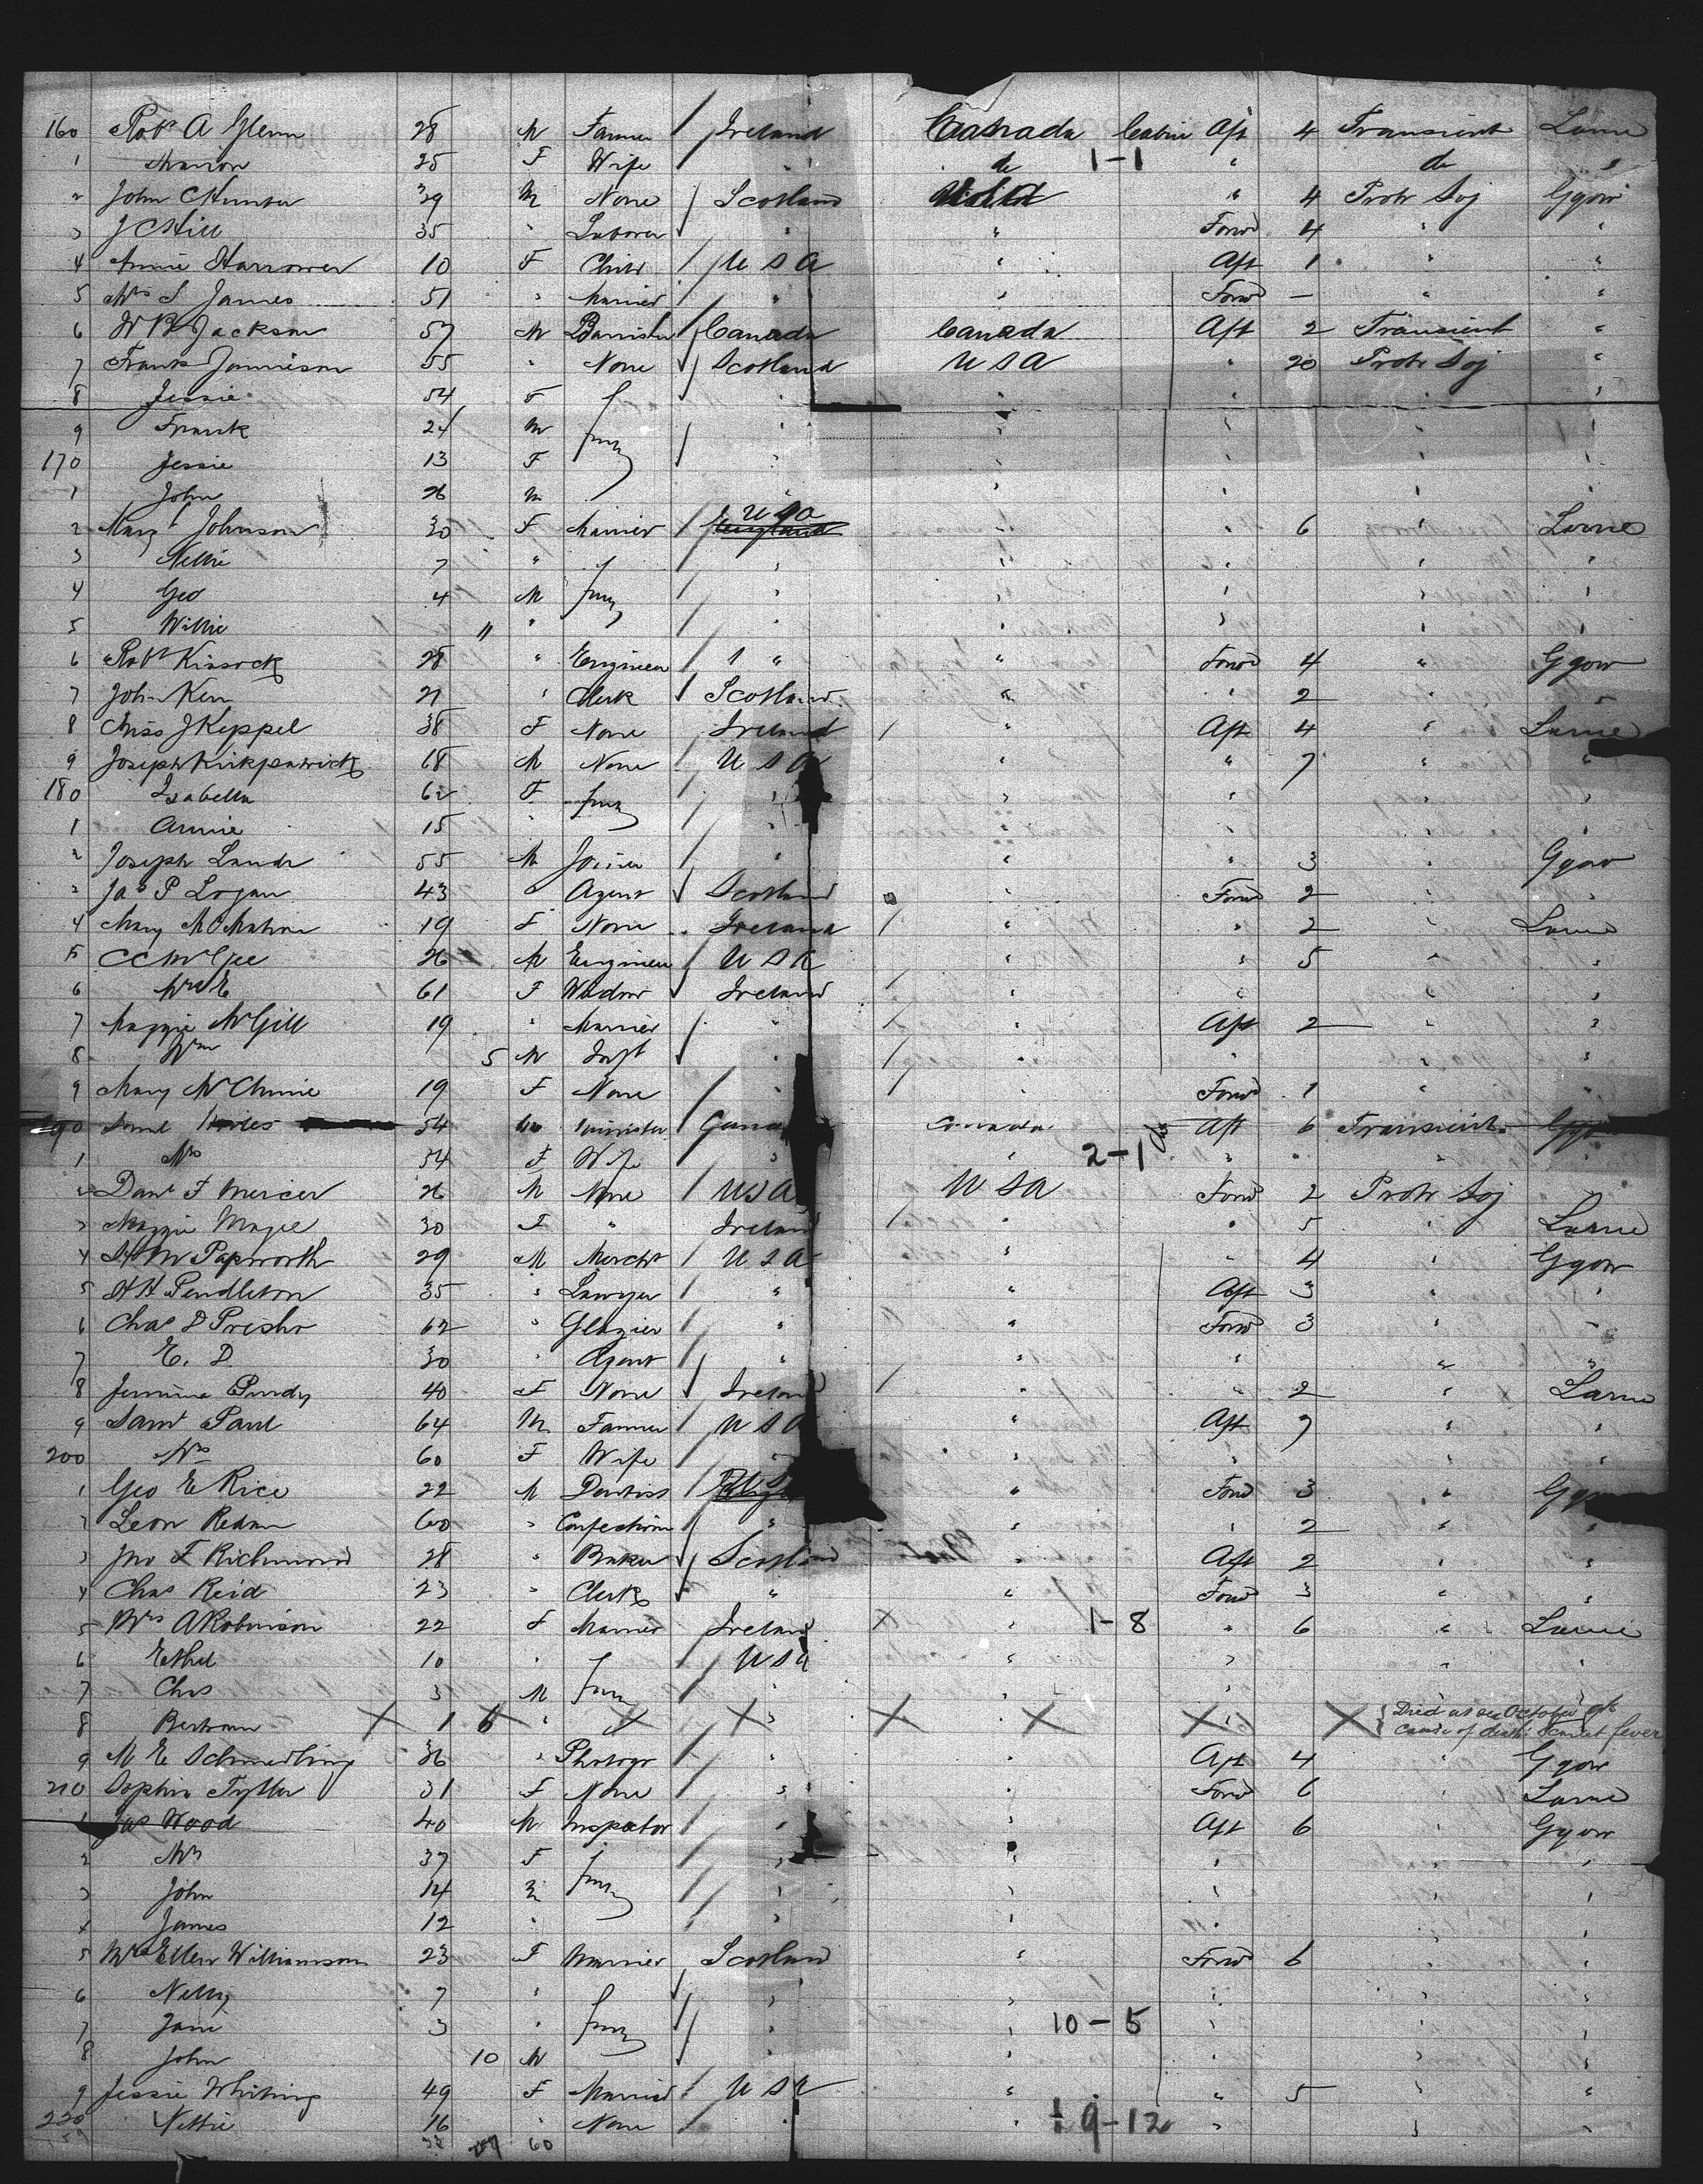 160 Robt A Glenn 28 M Farmer / Ireland Canada Cabin Aft 4 Transient Larne
1 Marion 25 F Wife / " do 1-1 " do "
2 John Hunter 39 M None / Scotland USA " 4 Protr Soj Ggow
3 J C Hill 35 " Laborer " " Forwd 4 " "
4 Annie Harrower 10 F Child / U S A " Aft 1 " "
5 Mrs S James 51 " Married / " " Forwd — " "
6 W B Jackson 57 M Barrister / Canada Canada Aft 2 Transient "
7 Frank Jamieson 55 " None Scotland U S A " 20 Protr Soj "
8 Jessie 54 F " " " "
9 Frank 24 M " " " "
170 Jessie 13 F " " " "
1 John 26 M " " " "
2 Margt Johnson 30 F Married / USA " " 6 " Larne
3 Nellie 7 " / " " " "
4 Geo 4 M / " " " "
5 Willie 11 " / " " " "
6 Robt Kissock 28 " Engineer / " " Forwd 4 " Ggow
7 John Kerr 21 " Clerk / Scotland " " 2 " "
8 Miss J Keppel 38 F None Ireland / " Aft 4 " Larne
9 Joseph Kirkpatrick 68 M None U S A " " 7 " "
180 Isabella 62 F / " " " "
1 Annie 15 " / " " " "
2 Joseph Lauder 55 M Joiner / " " " 3 " Ggow
3 Jas P Logan 43 " Agent Scotland " Forwd 2 " "
4 Mary McMahon 19 F None Ireland / " " 2 " Larne
5 C C McGee 26 M Engineer / U S A " " 5 " "
6 Mrs E 61 F Widow Ireland / " " " "
7 Maggie McGill 19 " Married / " / " Aft 2 " "
8 Wm 5 M Inft " / " " " "
9 Mary McChmie 19 F None / " / " Forwd 1 " "
190 Saml 54 Minister Canada Canada Aft 6 Transient Ggow
1 Mrs 54 F Wife " " 2-1 " " "
2 Danl F Mercer 26 M None / USA U S A Forwd 2 Protr Soj "
3 Maggie Magee 30 F " Ireland / " " 5 " Larne
4 H M Papworth 29 M Mercht / U S A " " 4 " Ggow
5 H H Pendleton 35 " Lawyer / " " Aft 3 " "
6 Chas D Preshr 62 " Glazier / " " Forwd 3 " "
7 E. D. 30 " Agent / " " " " "
8 Jemima Purdy 40 F None Ireland / " " 2 " Larne
9 Saml Paul 64 M Farmer / U S A " Aft 7 " "
200 Mrs 60 F Wife / " " " " "
1 Geo E Rice 22 M Dentist / " Forwd 3 " Ggow
2 Leon Redan 60 " Confectioner / " " " 2 " "
3 Jno F Richmond 28 " Baker Scotland " Aft 2 " "
4 Chas Reid 23 " Clerk " " Forwd 3 " "
5 Mrs A Robinson 22 F Married Ireland X " 1-8 " 6 " Larne
6 Ethel 10 " / U S A " " " "
7 Chas 3 M / " " " " "
8 Bertram X 1 6 X " X X " X X X " X Died at sea October 9th
cause of death: Scarlet fever
9 M E Schmedling 36 " Photogr / " " Aft 4 " Ggow
210 Sophia Tytler 31 F None / " " Forwd 6 " Larne
1 Jas Wood 40 M Inspector / " " Aft 6 " Ggow
2 Mrs 37 F / " " " " "
3 John 14 M / " " " " "
4 James 12 " / " " " " "
5 Mrs Ellen Williamson 23 F Married Scotland " Forwd 6 " "
6 Nelly 7 " " " " " "
7 Jane 3 " / " " 10-5 " " "
8 John 10 M " " " " "
9 Jessie Whiting 49 F Married / U S A " " 5 " "
220 Nettie 16 " None / " " 19-12 " " "
60